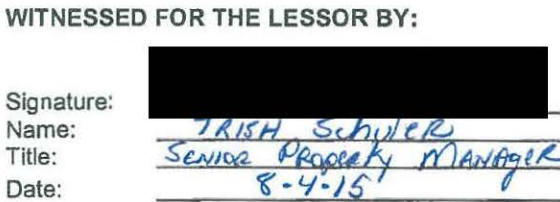 WITNESSED FOR THE LESSOR BY:
Signature:
Name: TRISH Schuler
Title: Senior Property Manager
Date: 8-4-15